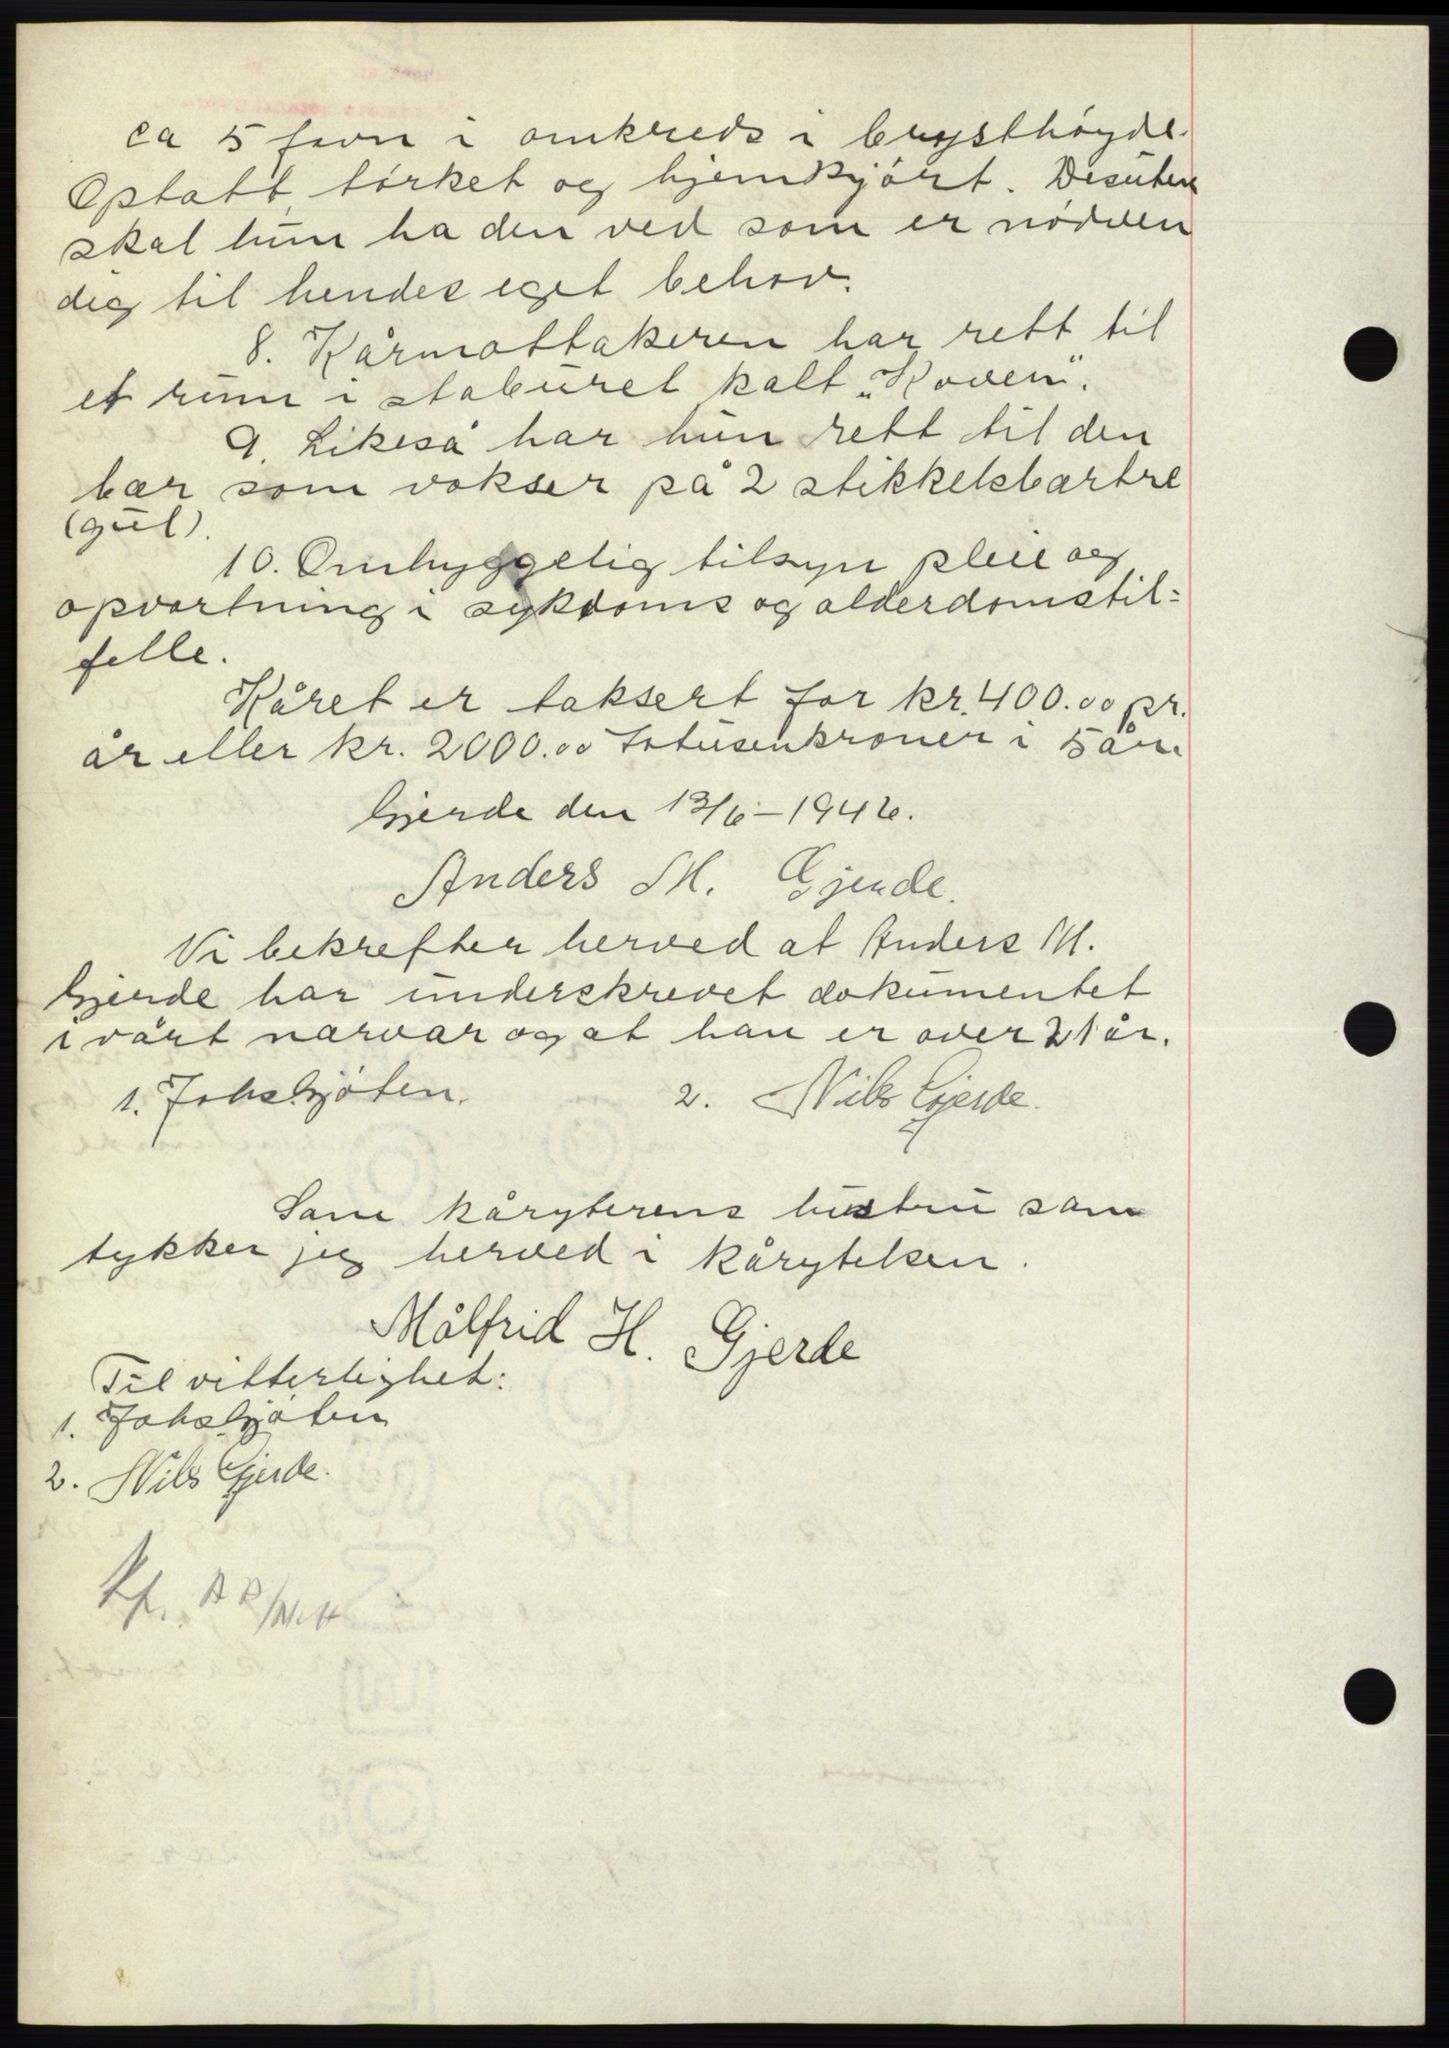 ca 5 favn i omkreds i brysthøyde.
Optatt, tørket og hjemkjørt. Desuten
skal hun ha den ved som er nødven
dig til hendes eget behov.
8. Kårmottakeren har rett til
et rum i staburet kalt „Koven".
9. Likeså har hun rett til den
bær som vokser på 2 stikkelsbærtre
(gul).
10. Omhyggelig tilsyn pleie og
opvartning i sykdoms og alderdomstil=
felle.
Kåret er taksert for kr. 400.00 pr.
år eller kr. 2000.00 totusenkroner i 5 år.
Gjerde den 13/6 - 1946.
Anders M. Gjerde.
Vi bekrefter herved at Anders M.
Gjerde har underskrevet dokumentet
i vårt nærvær og at han er over 21 år.
1. Johs Gjøten.
2. Nils Gjerde.
Som kåryterens hustru sam
tykker jeg herved i kårytelsen.
Målfrid H. Gjerde
Til vitterlighet:
1. Johs Gjøten
2. Nils Gjerde.